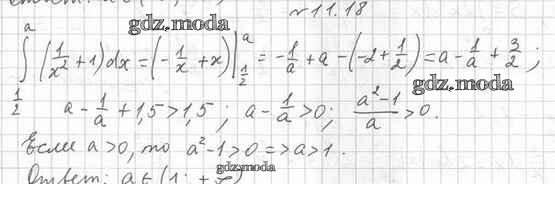 №11.18
gdz.moda
∫_{1/2}^{a} (1/x² + 1) dx = (-1/x + x) |_{1/2}^{a} = -1/a + a - (-2 + 1/2) = a - 1/a + 3/2 ;
gdz.moda
a - 1/a + 1,5 > 1,5 ; a - 1/a > 0 ; (a² - 1)/a > 0.
Если a > 0, то a² - 1 > 0 => a > 1.
gdz.moda
Ответ: a ∈ (1; +∞)